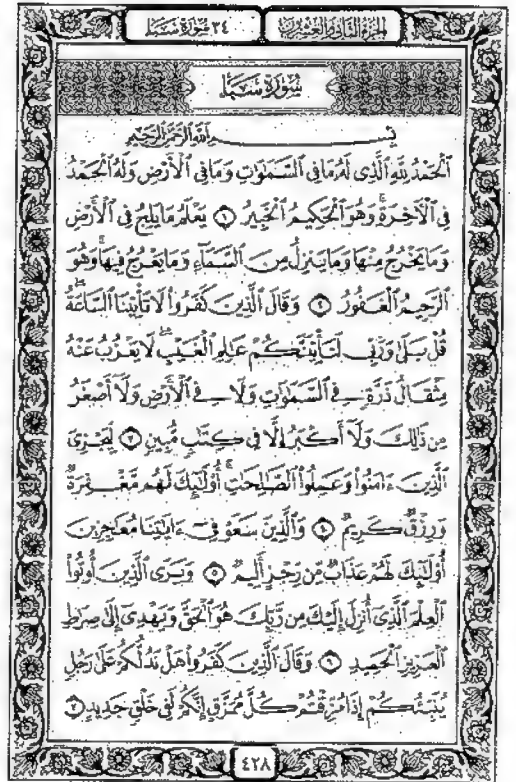 الجزء الثاني والعشرون
٣٤ سورة سبأ
سُورَةُ سَبَإٍ
بِسْمِ ٱللَّهِ ٱلرَّحْمَٰنِ ٱلرَّحِيمِ
ٱلْحَمْدُ لِلَّهِ ٱلَّذِى لَهُۥ مَا فِى ٱلسَّمَٰوَٰتِ وَمَا فِى ٱلْأَرْضِ وَلَهُ ٱلْحَمْدُ
فِى ٱلْأَخِرَةِ ۚ وَهُوَ ٱلْحَكِيمُ ٱلْخَبِيرُ ١ يَعْلَمُ مَا يَلِجُ فِى ٱلْأَرْضِ
وَمَا يَخْرُجُ مِنْهَا وَمَا يَنزِلُ مِنَ ٱلسَّمَآءِ وَمَا يَعْرُجُ فِيهَا ۚ وَهُوَ
ٱلرَّحِيمُ ٱلْغَفُورُ ٢ وَقَالَ ٱلَّذِينَ كَفَرُوا۟ لَا تَأْتِينَا ٱلسَّاعَةُ ۖ
قُلْ بَلَىٰ وَرَبِّى لَتَأْتِيَنَّكُمْ عَٰلِمِ ٱلْغَيْبِ ۖ لَا يَعْزُبُ عَنْهُ
مِثْقَالُ ذَرَّةٍ فِى ٱلسَّمَٰوَٰتِ وَلَا فِى ٱلْأَرْضِ وَلَآ أَصْغَرُ
مِن ذَٰلِكَ وَلَآ أَكْبَرُ إِلَّا فِى كِتَٰبٍ مُّبِينٍ ٣ لِّيَجْزِىَ
ٱلَّذِينَ ءَامَنُوا۟ وَعَمِلُوا۟ ٱلصَّٰلِحَٰتِ ۚ أُو۟لَٰٓئِكَ لَهُم مَّغْفِرَةٌ
وَرِزْقٌ كَرِيمٌ ٤ وَٱلَّذِينَ سَعَوْ فِىٓ ءَايَٰتِنَا مُعَٰجِزِينَ
أُو۟لَٰٓئِكَ لَهُمْ عَذَابٌ مِّن رِّجْزٍ أَلِيمٌ ٥ وَيَرَى ٱلَّذِينَ أُوتُوا۟
ٱلْعِلْمَ ٱلَّذِىٓ أُنزِلَ إِلَيْكَ مِن رَّبِّكَ هُوَ ٱلْحَقَّ وَيَهْدِىٓ إِلَىٰ صِرَٰطِ
ٱلْعَزِيزِ ٱلْحَمِيدِ ٦ وَقَالَ ٱلَّذِينَ كَفَرُوا۟ هَلْ نَدُلُّكُمْ عَلَىٰ رَجُلٍ
يُنَبِّئُكُمْ إِذَا مُزِّقْتُمْ كُلَّ مُمَزَّقٍ إِنَّكُمْ لَفِى خَلْقٍ جَدِيدٍ ٧
٤٢٨